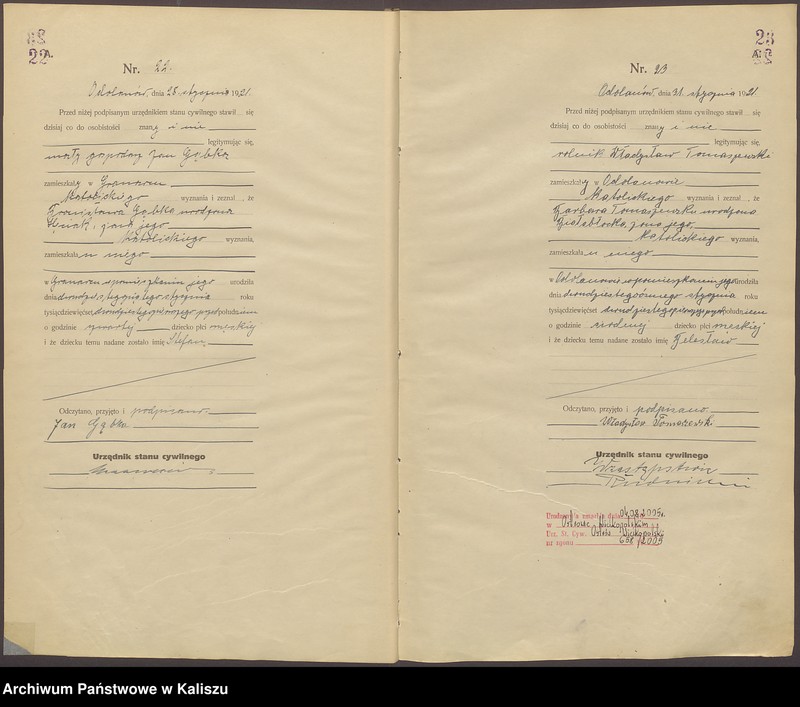 22
22 A.
Nr. 22.
Odolanów, dnia 28 stycznia 1921.
Przed niżej podpisanym urzędnikiem stanu cywilnego stawił się
dzisiaj co do osobistości znany i nie
legitymując się,
mały gospodarz Jan Gąbka
zamieszkały w Granarem
katolickiego wyznania i zeznał, że
Gąbka urodzona
żona jego
katolickiego wyznania,
zamieszkała u niego
w Granarem w pomieszkaniu jego urodziła
dnia stycznia roku
tysiącdziewięćset dwudziestego pierwszego przed południem
o godzinie czwartej dziecko płci męskiej
i że dziecku temu nadane zostało imię Stefan
Odczytano, przyjęto i podpisano
Jan Gąbka
Urzędnik stanu cywilnego
23
A.
Nr. 23
Odolanów, dnia 31. stycznia 1921.
Przed niżej podpisanym urzędnikiem stanu cywilnego stawił się
dzisiaj co do osobistości znany i nie
legitymując się,
rolnik Władysław Tomaszewski
zamieszkały w Odolanowie
katolickiego wyznania i zeznał, że
Barbara Tomaszewska urodzona
żona jego,
katolickiego wyznania,
zamieszkała u niego
w Odolanowie w pomieszkaniu jego urodziła
dnia dwudziestego ósmego stycznia roku
tysiącdziewięćset dwudziestego pierwszego przed południem
o godzinie siódmej dziecko płci męskiej
i że dziecku temu nadane zostało imię
Odczytano, przyjęto i podpisano
Władysław Tomaszewski
Urzędnik stanu cywilnego
W zastępstwie
04.08.2005r.
w Ostrowie Wielkopolskim
Urz. St. Cyw. Ostrów Wielkopolski
nr zgonu 658/2005
Archiwum Państwowe w Kaliszu